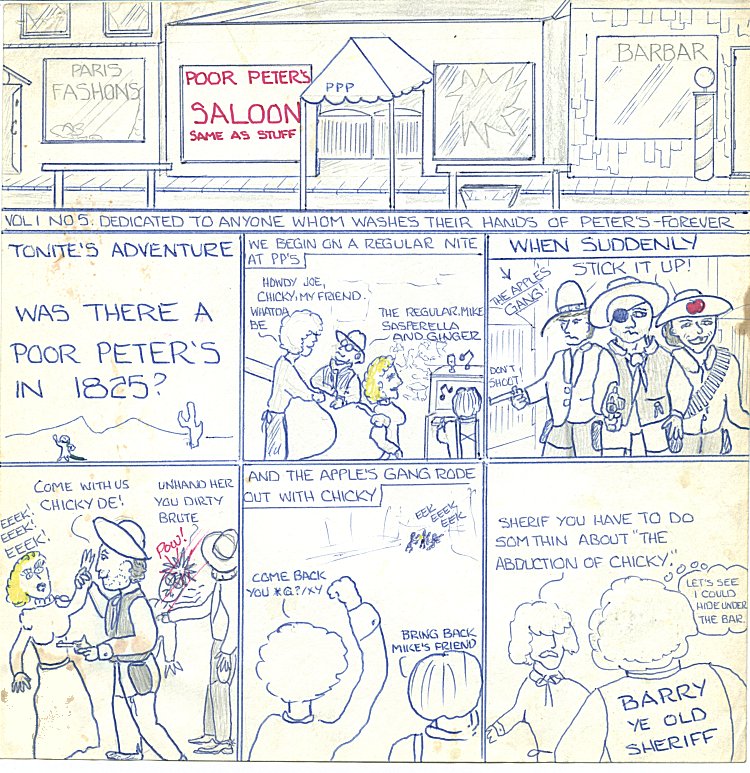 PARIS
FASHONS
POOR PETER'S
SALOON
SAME AS STUFF
PPP
BARBAR
VOL I NO 5: DEDICATED TO ANYONE WHOM WASHES THEIR HANDS OF PETER'S-FOREVER
TONITE'S ADVENTURE
WAS THERE A
POOR PETER'S
IN 1825?
WE BEGIN ON A REGULAR NITE
AT PP'S
HOWDY JOE,
CHICKY, MY FRIEND.
WHATDA
BE
THE REGULAR, MIKE
SASPERELLA
AND GINGER
WHEN SUDDENLY
STICK IT UP!
THE APPLE'S
GANG!
DON'T
SHOOT!
COME WITH US
CHICKY DE!
EEEK!
EEEK!
EEEK!
UNHAND HER
YOU DIRTY
BRUTE
POW!
AND THE APPLE'S GANG RODE
OUT WITH CHICKY
EEK
EEEK
EEK
COME BACK
YOU *G?/XY
BRING BACK
MIKE'S FRIEND
SHERIF YOU HAVE TO DO
SOMTHIN ABOUT "THE
ABDUCTION OF CHICKY."
LET'S SEE
I COULD
HIDE UNDER
THE BAR.
BARRY
YE OLD
SHERIFF